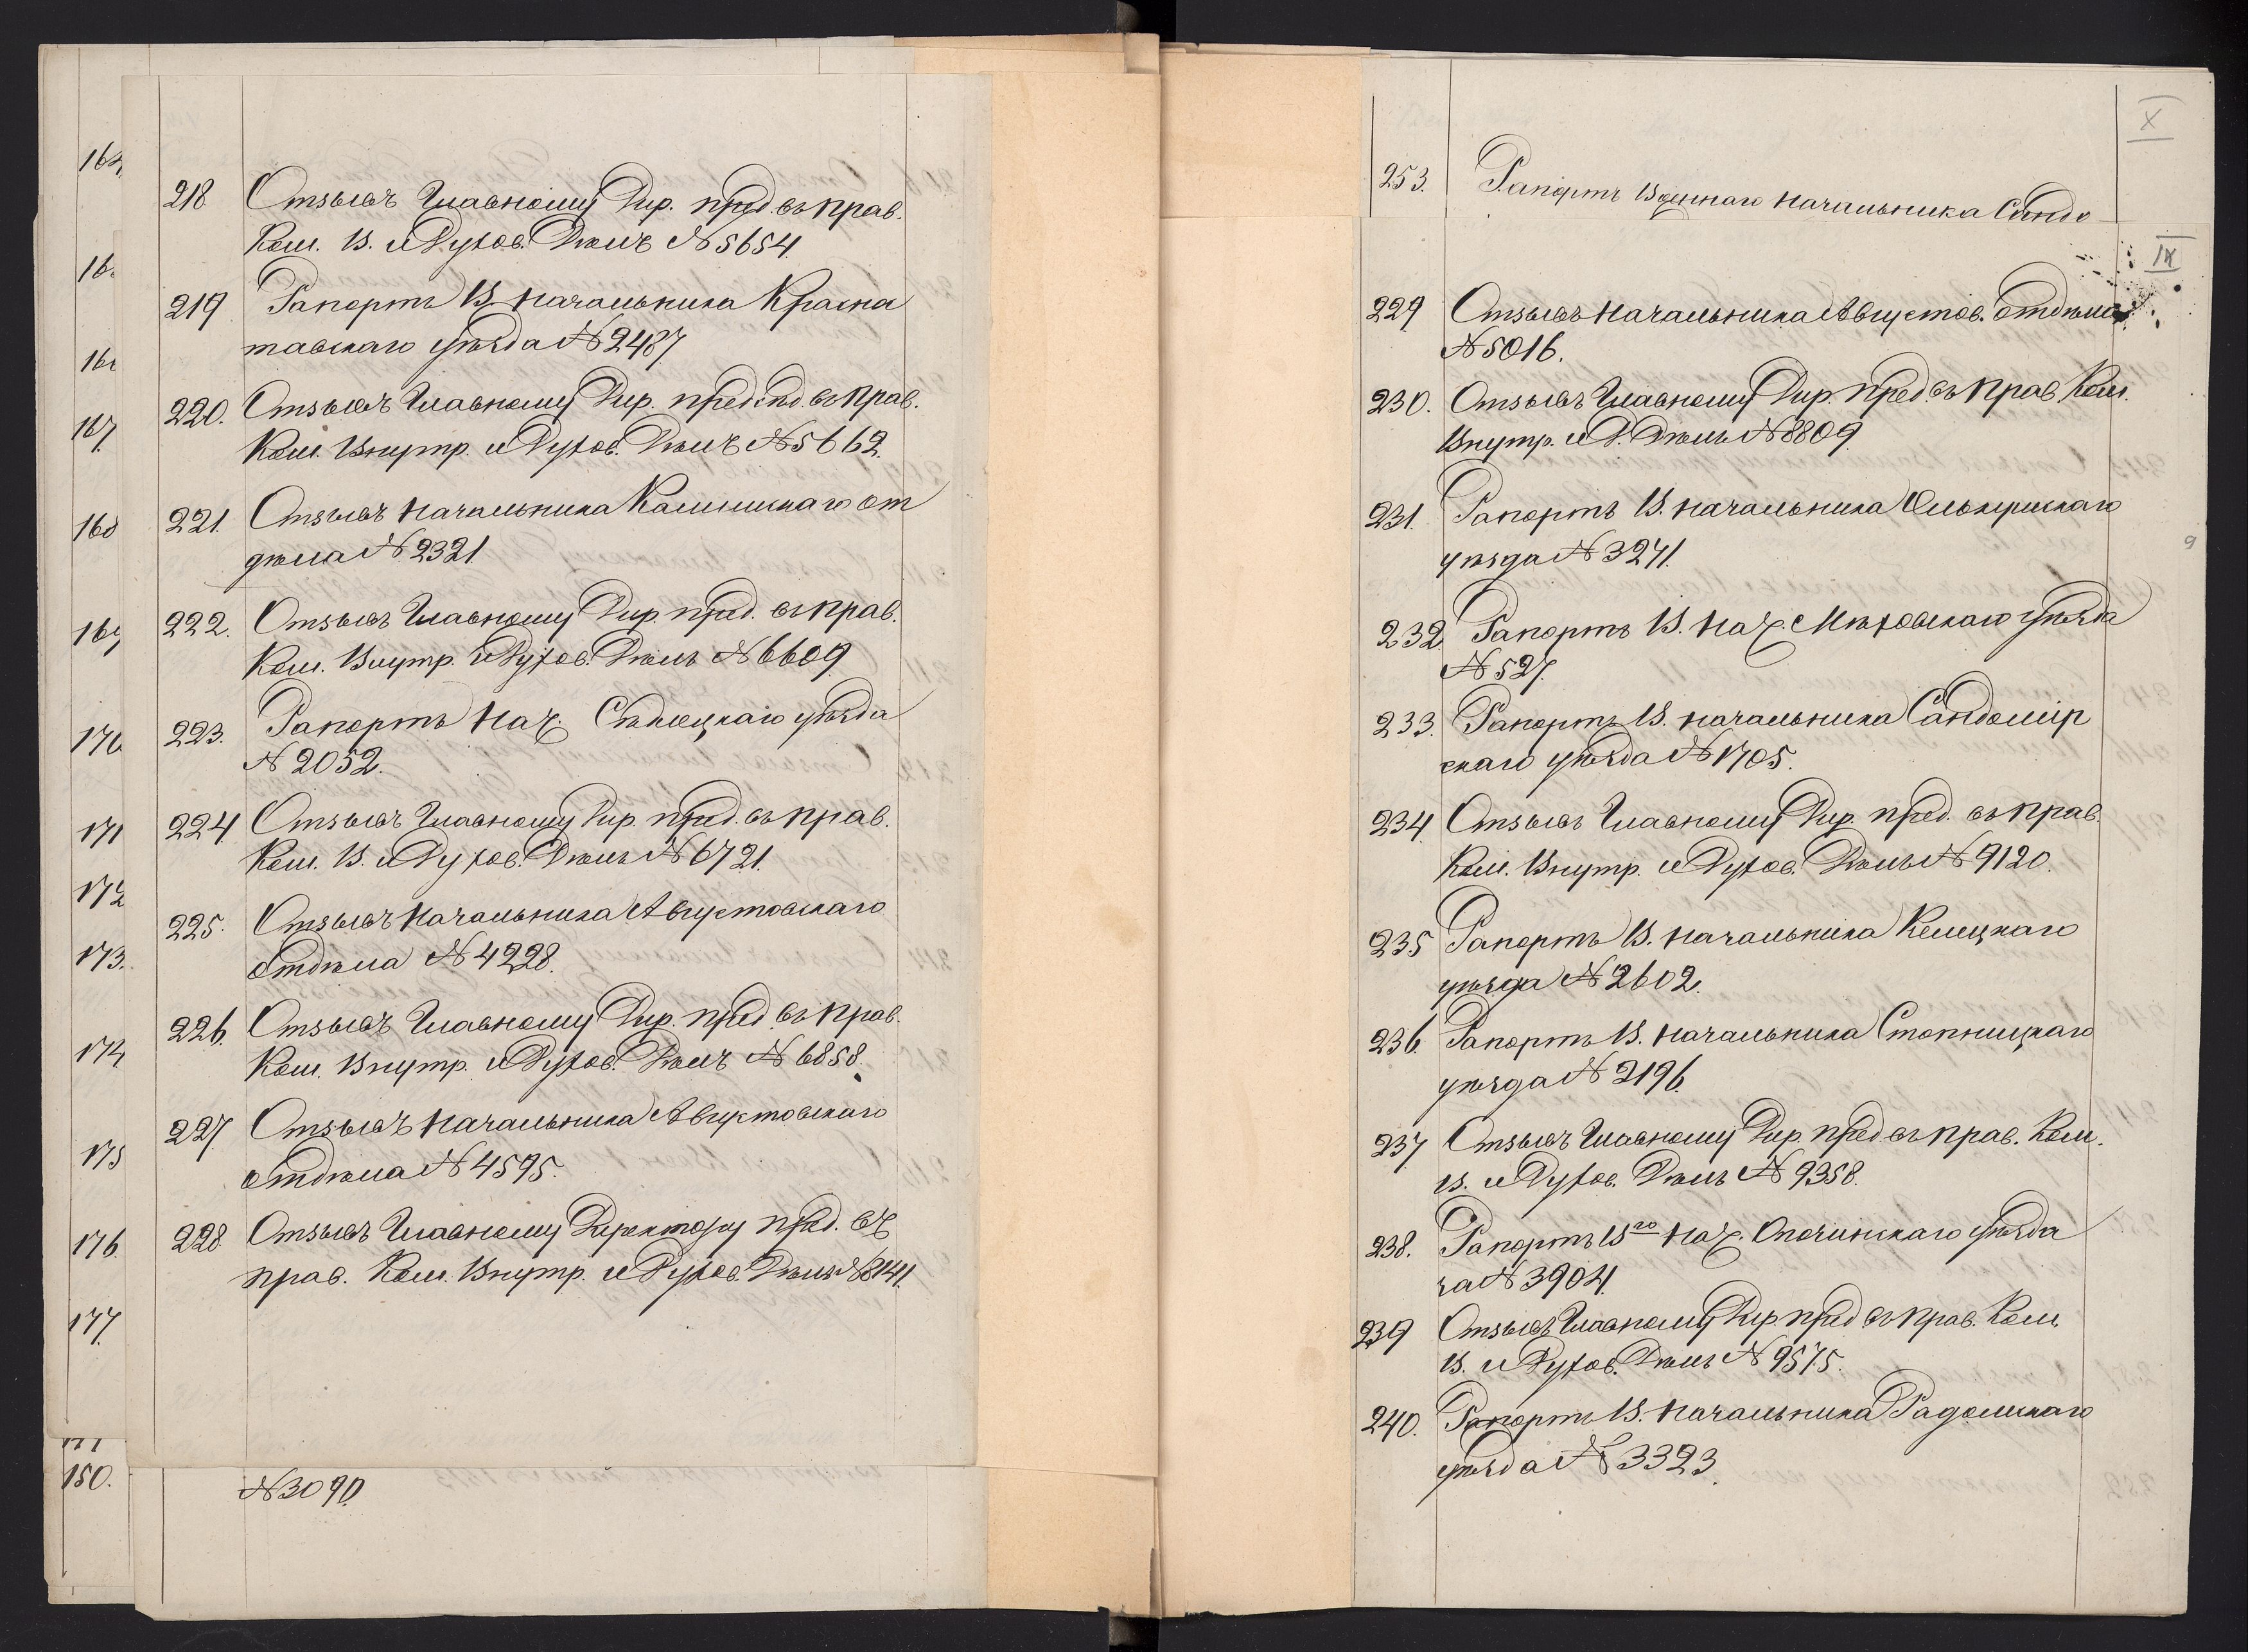 164
16
16
167
168
169
170
171
172
173.
174
175
176
177.
177
150.
218 Отзывъ Главному Дир. пред. въ прав.
Ком. В. и Духов. Дѣлъ №5654.
219 Рапортъ В. Начальника Красна
тавскаго уѣзда №2487
220. Отзывъ Главному Дир. предсѣд. въ Прав.
Ком. Внутр. и Духов. Дѣлъ №5662.
221. Отзывъ Начальника Калишскаго от
дѣла №2321.
222. Отзывъ Главному Дир. пред. въ прав.
Ком. Внутр. и Духов. Дѣлъ №6609
223. Рапортъ Нач. Сѣдлецкаго уѣзда
№2052.
224 Отзывъ Главному Дир. пред. въ прав.
Ком. В. и Духов. Дѣлъ №6721.
225. Отзывъ Начальника Августовскаго
Отдѣла №4228.
226. Отзывъ Главному Дир. пред. въ прав.
Ком. Внутр. и Духов. Дѣлъ №6858.
227 Отзывъ Начальника Августовскаго
отдѣла №4595.
228 Отзывъ Главному Директору пред. въ
прав. Ком. Внутр. и Духов. Дѣлъ №8141.
№3090.
X
253. Рапортъ Военнаго Начальника Сандо
IX
229 Отзывъ Начальника Августов. Отдѣла
№5016.
230. Отзывъ Главному Дир. Пред. въ прав. Ком.
Внутр. и Д. Дѣлъ №8809
231. Рапортъ В. Начальника Олькушскаго
уѣзда №3271.
9
232 Рапортъ В. Нач. Мѣховскаго уѣзда
№527.
233. Рапортъ В. Начальника Сандомір
скаго уѣзда №1705.
234 Отзывъ Главному Дир. пред. въ прав.
Ком. Внутр. и Духов. Дѣлъ №9120.
235 Рапортъ В. Начальника Келецкаго
уѣзда №2602.
236. Рапортъ В. Начальника Стопницкаго
уѣзда №2196.
237 Отзывъ Главному Дир. пред. въ прав. Ком.
В. и Духов. Дѣлъ №9358.
238. Рапортъ В го Нач. Опочинскаго уѣзда
за №3904.
239 Отзывъ Главному Дир. пред въ прав. Ком.
В. и Духов. Дѣлъ №9575.
240. Рапортъ В. Начальника Радомскаго
уѣзда №3323.